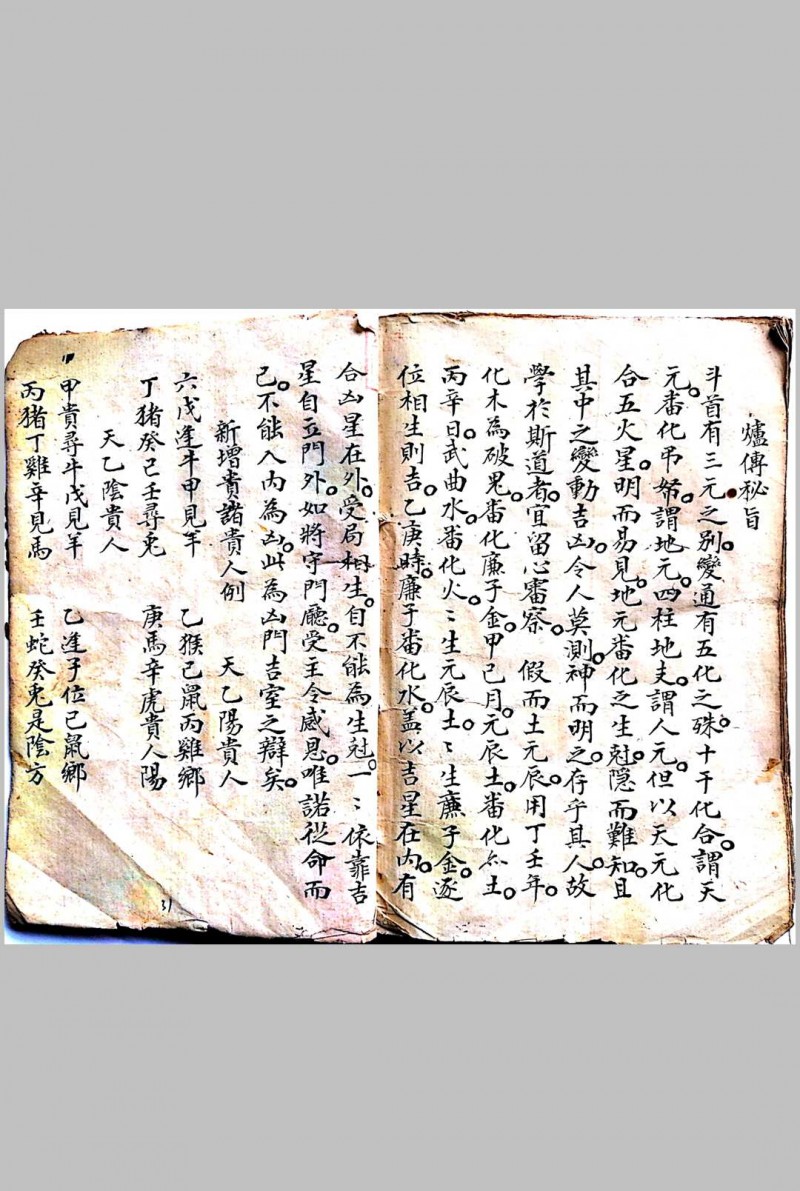 爐傳秘旨
斗首有三元之別。變通有五化之殊。十干化合。謂天
元。番化吊努。謂地元。四柱地支。謂人元。但以天元化
合五火星。明而易見。地元番化之生尅。隐而難知。且
其中之變動吉凶。令人莫測。神而明之。存乎其人。故
學於斯道者。宜留心審察。假而土元辰。用丁壬年。
化木為破鬼。番化廉子金。甲己月。元辰土。番化亦土。
丙辛日。武曲水。番化火。〻生元辰土。〻生廉子金。逐
位相生則吉。乙庚時。廉子番化水。盖以吉星在内。有
合凶星在外。受局相生。自不能為生尅。一〻依靠吉
星自立門外。如將守門廳。受主令感恩。唯諾從命而
已。不能入内為凶。此為凶門吉室之辯矣。
新增貴諸貴人例 天乙陽貴人
六戊逢牛甲見羊 乙猴己鼠丙雞鄉
丁猪癸己壬尋兎 庚馬辛虎貴人陽
天乙陰貴人
甲貴尋牛戊見羊 乙逢子位己鼠鄉
丙猪丁雞辛見馬 壬蛇癸兎是陰方
31